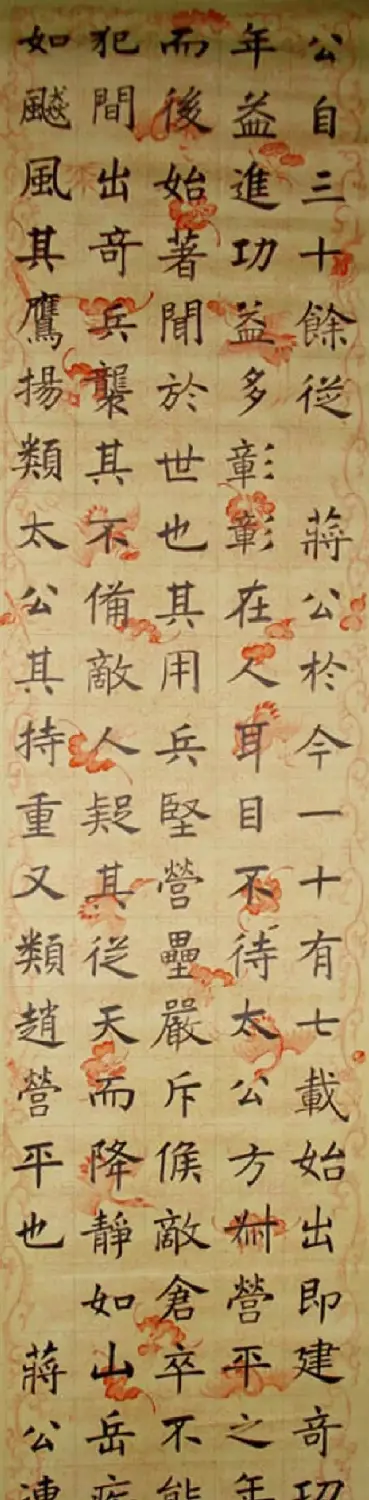 公自三十餘從 蔣公於今一十有七載始出即建奇功
年益進功益多彰彰在人耳目不待太公方對營平之年
而後始著聞於世也其用兵堅營壘嚴斥候敵倉卒不能
犯間出奇兵襲其不備敵人疑其從天而降靜如山岳疾
如飈風其鷹揚類太公其持重又類趙營平也 蔣公